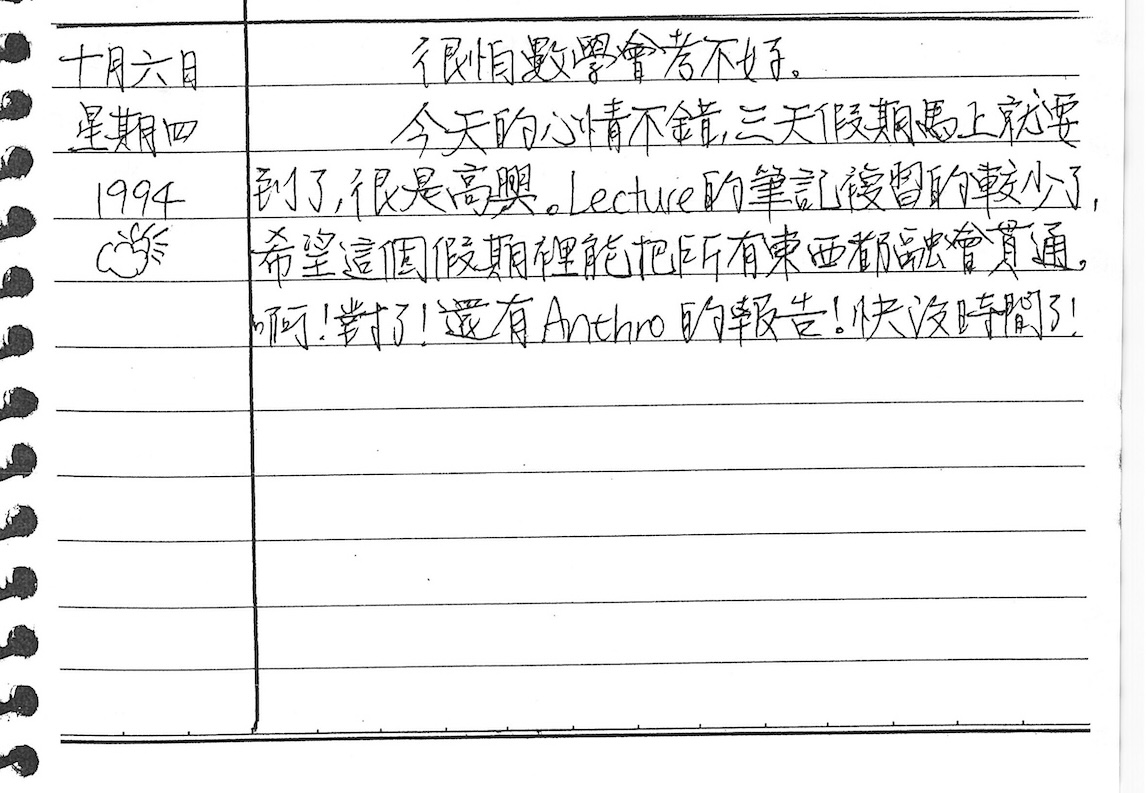 十月六日
很怕數學會考不好。
星期四
今天的心情不錯,三天假期馬上就要
1994
到了,很是高興。Lecture的筆記複習的較少了,
希望這個假期裡能把所有東西都融會貫通。
啊!對了!還有Anthro的報告!快沒時間了!